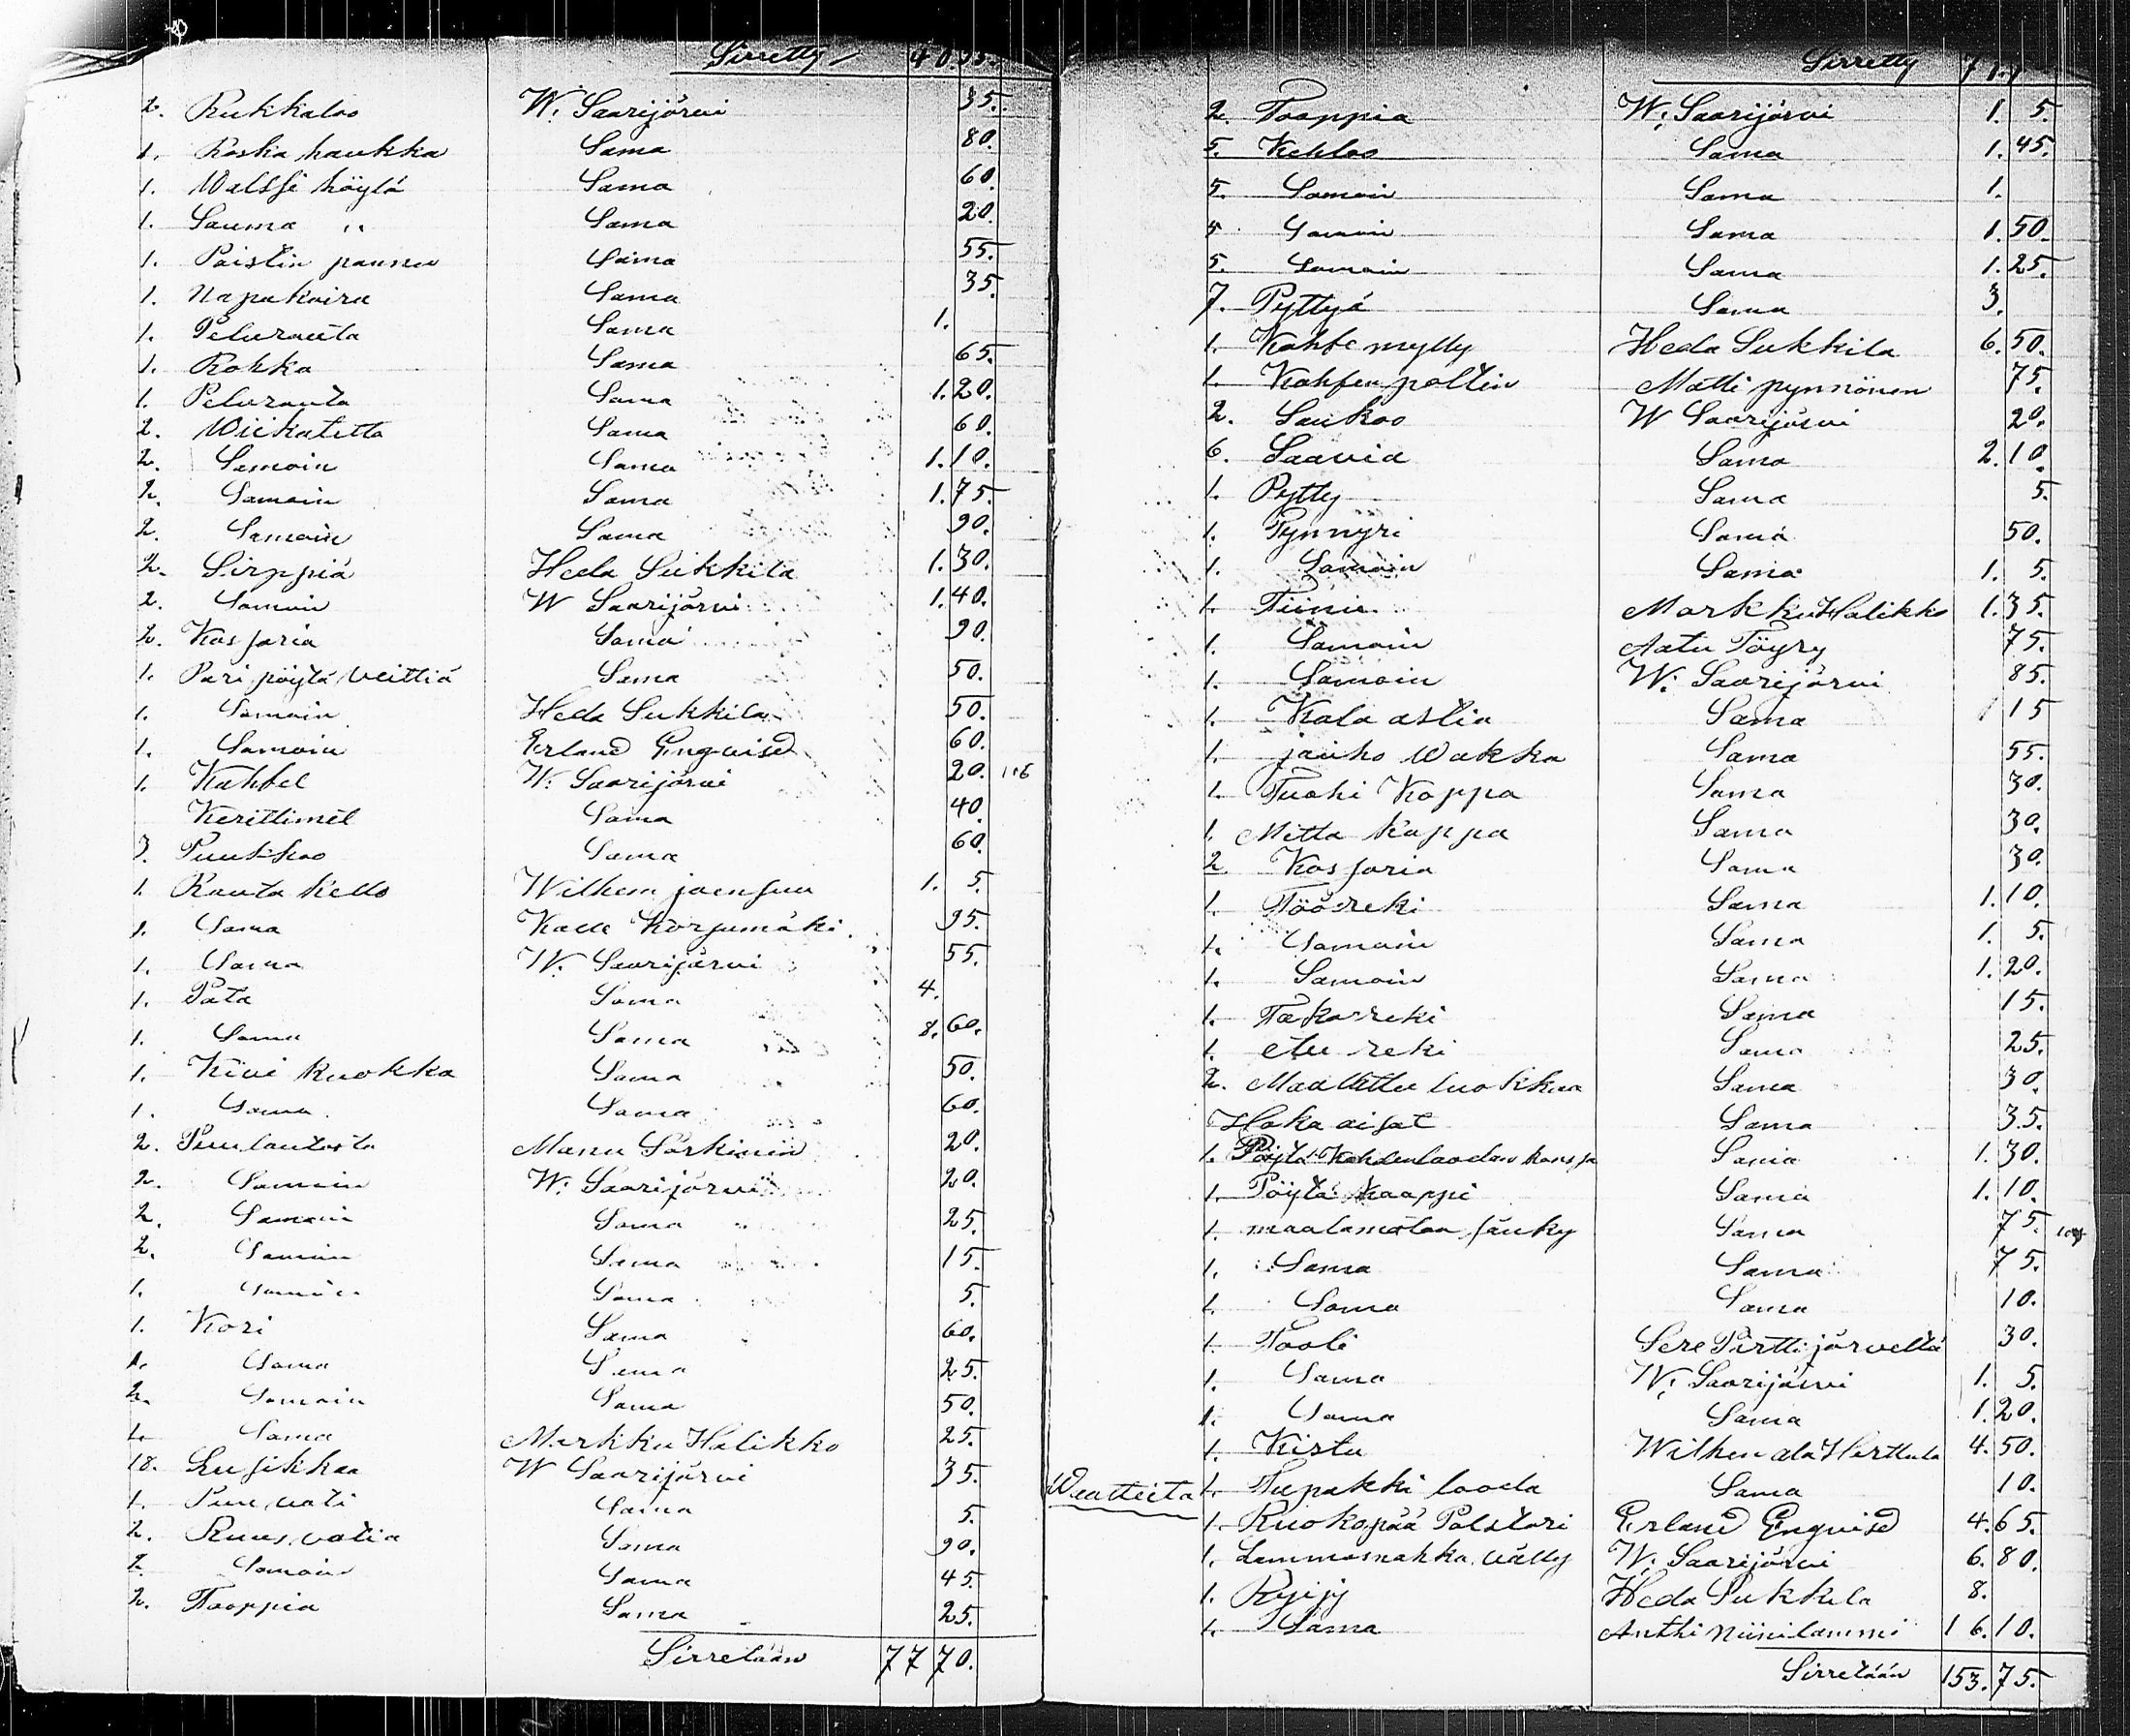 Sirretty 40.55.
2. Kukkaloo W. Saarijärvi 35.
1. Koska haukka Sama 80.
1. Walssi höylä Sama 60.
1. Sauma " Sama 20.
1. Paistin pannu Sama 55.
1. Napakaira Sama 35.
1. Pelurauta Sama 1.
1. Kokka Sama 65.
1. Pelurauta Sama 1.20.
2. Wiikatetta Sama 60.
2. Samoin Sama 1.10.
2. Samoin Sama 1.75.
2. Samoin Sama 90.
2. Sirppiä Heda Sukkila 1.30.
2. Samoin W Saarijärvi 1.40.
2. Kassaria Sama 90.
1. Pari pöytä veittiä Sama 50.
1. Samoin Heda Sukkila 50.
1. Samoin Erland Enqvisd 60.
1. Kahfel W. Saarijärvi 20.
Kerittimet Sama 40.
3. Puukkoo Sama 60.
1. Rauta kello Wilhem joensuu 1. 5.
1. Sama Kalle Korjumäki 95.
1. Sama W. Saarijärvi 55.
1. Pata Sama 4.
1. Sama Sama 8.60.
1. Kivi kuokka Sama 50.
1. Sama Sama 60.
2. Puulautasta Manu Särkinin 20.
2. Samoin W. Saarijärvi 20.
2. Samoin Sama 25.
2. Samoin Sama 15.
1. Samoin Sama 5.
1. Kori Sama 60.
1. Sama Sama 25.
2. Samoin Sama 50.
1. Sama Markku Halikko 25.
18. Lusikkaa W Saarijärvi 35.
1. Puu vati Sama 5.
2. Ruus vatia Sama 90.
2. Samoin Sama 45.
2. Tooppia Sama 25.
Sirretään 77 70.
Sirretty
2. Tooppia W. Saarijärvi 1. 5.
5. Kehloo Sama 1.45.
5. Samoin Sama 1.
5 Samoin Sama 1.50.
5. Samoin Sama 1.25.
7. Pyttyä Sama 3.
1. Kahfe mylly Heda Sukkila 6.50.
1. Kahfen polttin Matti pynnönen 75.
2. Saukoo W Saarijärvi 20.
6. Saavia Sama 2.10.
1. Pytty Sama 5.
1. Pynnyri Sama 50.
1. Samoin Sama 1. 5.
1. Tiinu Markku Halikko 1.35.
1. Samoin Aatu Töyry 75.
1. Samoin W. Saarijärvi 85.
1. Kala astia Sama 15
1. jauho Wakka Sama 55.
1. Tuohi Koppa Sama 30.
1. Mitta kappa Sama 30.
2 Kassaria Sama 30.
1. Työreki Sama 1.10.
1. Samoin Sama 1. 5.
1. Samoin Sama 1.20.
1. Takareki Sama 15.
1. etu reki Sama 25.
2. luokkaa Sama 30.
Haka aisat Sama 35.
1. Pöytä Kahdenlaodan kanssa Sama 1.30.
1. Pöytä kaappi Sama 1.10.
1. maalamatan sänky Sama 75.
1. Sama Sama 75.
1. Sama Sama 10.
1. Tooli Sere Pirttijärveltä 30.
1. Sama W. Saarijärvi 1. 5.
1. Sama Sama 1.20.
1. Kistu Wilhen ala Herttula 4.50.
1. Tupakki looda Sama 10.
Waatteita
1. Ruokopää Polstari Erland Enqvisd 4.65.
1. Lammasnahka välly W. Saarijärvi 6.80.
1. Ryijy Heda Sukkila 8.
1. Sama Anthi Niinilammi 16.10.
Sirretään 153.75.